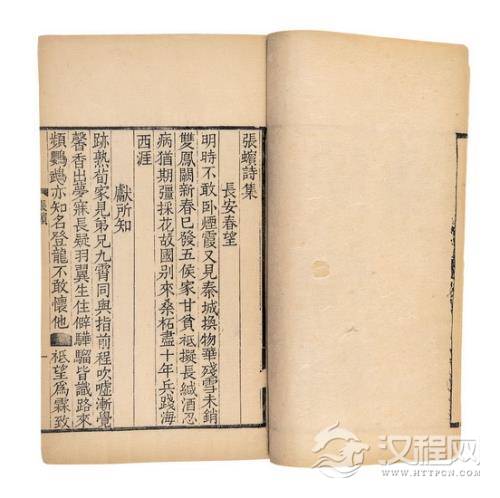 張蠙詩集
長安春望
明時不敢卧煙霞又見秦城換物華殘雪未銷
雙鳳闕新春已發五侯家甘貧秪擬長緘酒忍
病猶期彊採花故國別來桑柘盡十年兵踐海
西涯
獻所知
跡熟荀家見弟兄九霄同與指前程吹噓漸覺
馨香出夢寐長疑羽翼生住僻驊騮皆識路來
頻鸚鵡亦知名登龍不敢懷他秪望為霖致
張蠙
一
汉程网
WWW.HTTPCN.COM